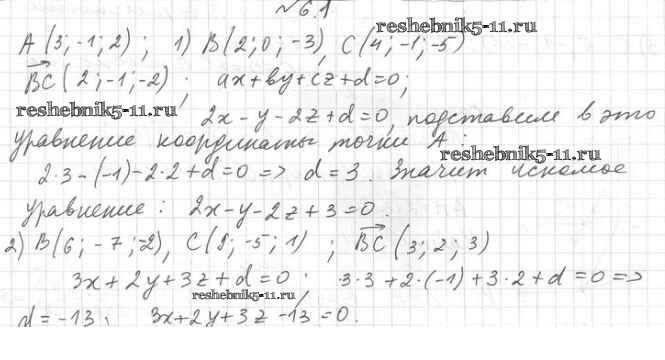 № 6.1
reshebnik5-11.ru
A(3;-1;2); 1) B(2;0;-3), C(4;-1;-5)
BC(2;-1;-2); ax+by+cz+d=0;
reshebnik5-11.ru
2x-y-2z+d=0, подставим в это
уравнение координаты точки A:
reshebnik5-11.ru
2·3-(-1)-2·2+d=0 => d=3. Значит искомое
уравнение: 2x-y-2z+3=0.
2) B(6;-7;-2), C(9;-5;1); BC(3;2;3)
3x+2y+3z+d=0; 3·3+2·(-1)+3·2+d=0 =>
reshebnik5-11.ru
d=-13; 3x+2y+3z-13=0.